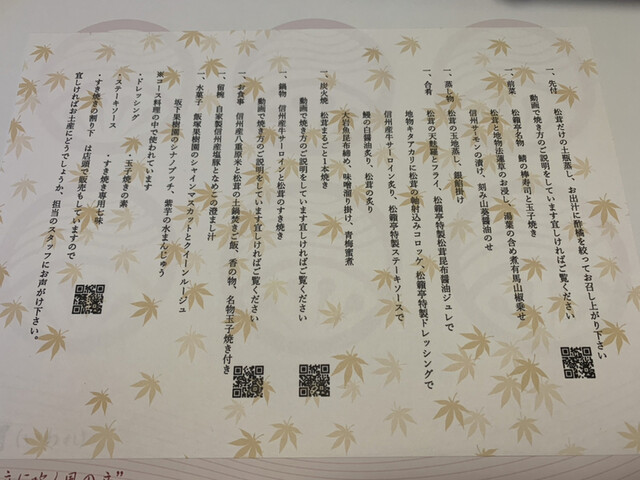 一、先付　松茸だけの土瓶蒸し、お出汁に酢橘を絞ってお召し上がり下さい
動画で焼き方のご説明をしています宜しければご覧ください
一、前菜　松籟亭名物　鯖の棒寿司と玉子焼き
松茸と地物法蓮草のお浸し、湯葉の含め煮有馬山椒乗せ
信州サーモンの漬け、刻み山葵醤油のせ
一、蒸し物　松茸の玉地蒸し、銀餡掛け
一、合肴　松茸の天麩羅とフライ、松籟亭特製松茸昆布醤油ジュレで
地物キタアカリに松茸の軸射込みコロッケ、松籟亭特製ドレッシングで
信州産牛サーロイン炙り、松籟亭特製ステーキソースで
鰻の白醤油炙り、松茸の炙り
大岩魚昆布締め、味噌溜り掛け、青梅蜜煮
一、炭火焼　松茸まるごと1本焼き
動画で焼き方のご説明をしています宜しければご覧ください
一、鍋物　信州産牛サーロインと松茸のすき焼き
動画で焼き方のご説明をしています宜しければご覧ください
一、お食事　信州産八重原米と松茸の土鍋焚きご飯、香の物、名物玉子焼き付き
一、留椀　自家製信州産塩豚となめこの澄まし汁
一、水菓子　飯塚果樹園のシャインマスカットとクイーンルージュ
坂下果樹園のシナノプッチ、紫芋の水まんじゅう
※コース料理の中で使われています
・ドレッシング　・玉子焼きの素
・ステーキソース　・すき焼き専用七味
・すき焼きの割り下　は店頭で販売もしていますので
宜しければお土産にどうでしょうか、担当のスタッフにお声がけ下さい。